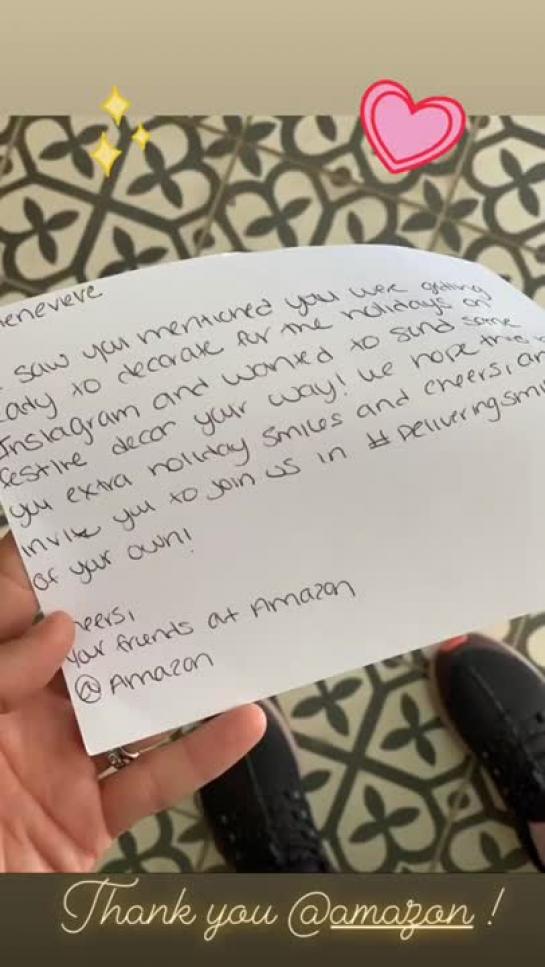 enevieve
saw you mentioned you were getting
eady to decorate for the holidays on
Instagram and wanted to send some
festive decor your way! We hope this
you extra holiday smiles and cheers, an
invite you to join us in #Deliveringsmi
of your own!
heers,
Your friends at Amazon
@Amazon
Thank you @amazon !